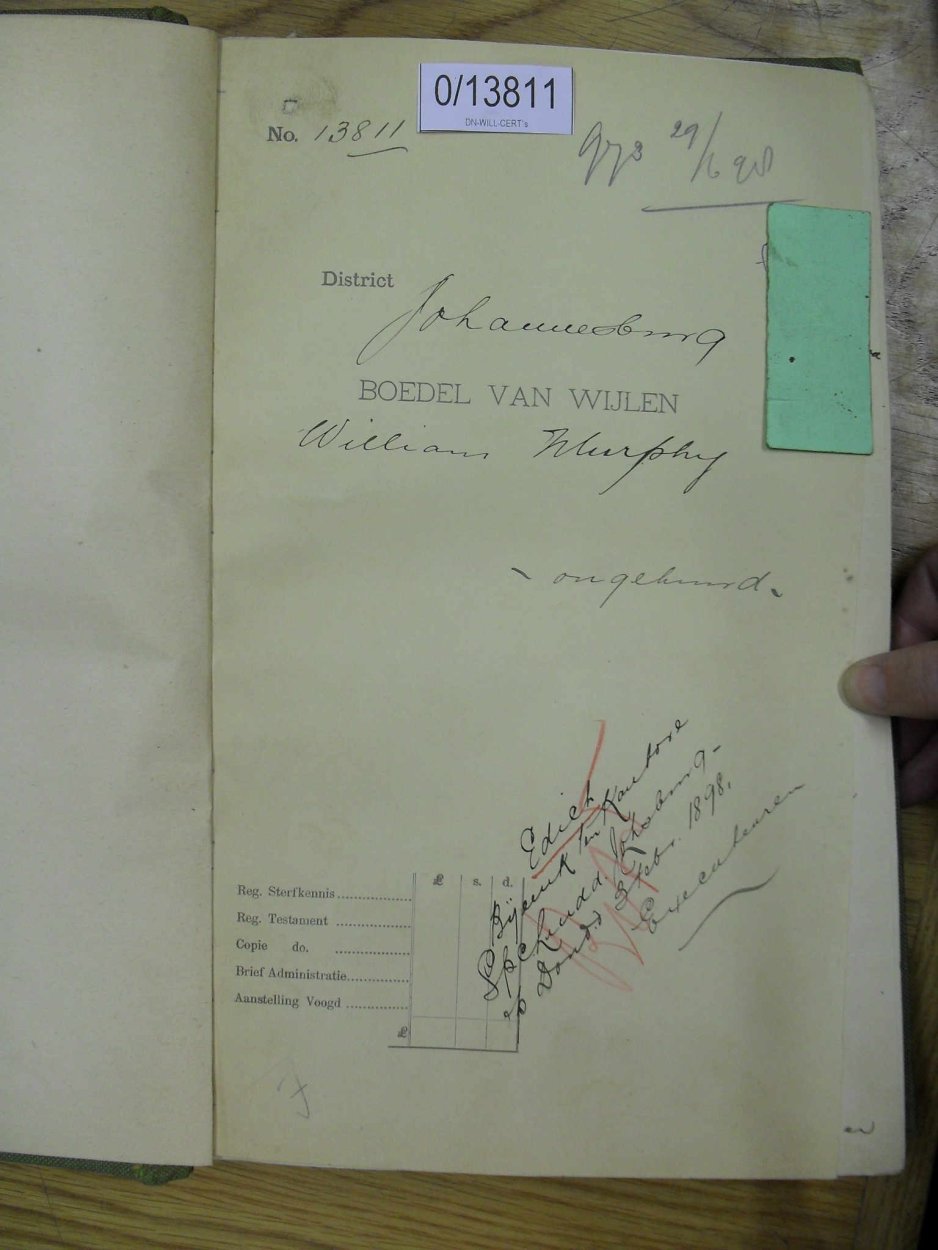 0/13811
DN-WILL-CERT's
No. 13811
29/6 98
District Johannesburg
BOEDEL VAN WIJLEN
William Murphy
- ongehuwd -
Edict
Bijeenk ten Kantore
Johsburg -
Dond. 3 Feb. 1898.
Executeuren
£ s. d.
Reg. Sterfkennis
Reg. Testament
Copie do.
Brief Administratie
Aanstelling Voogd
£